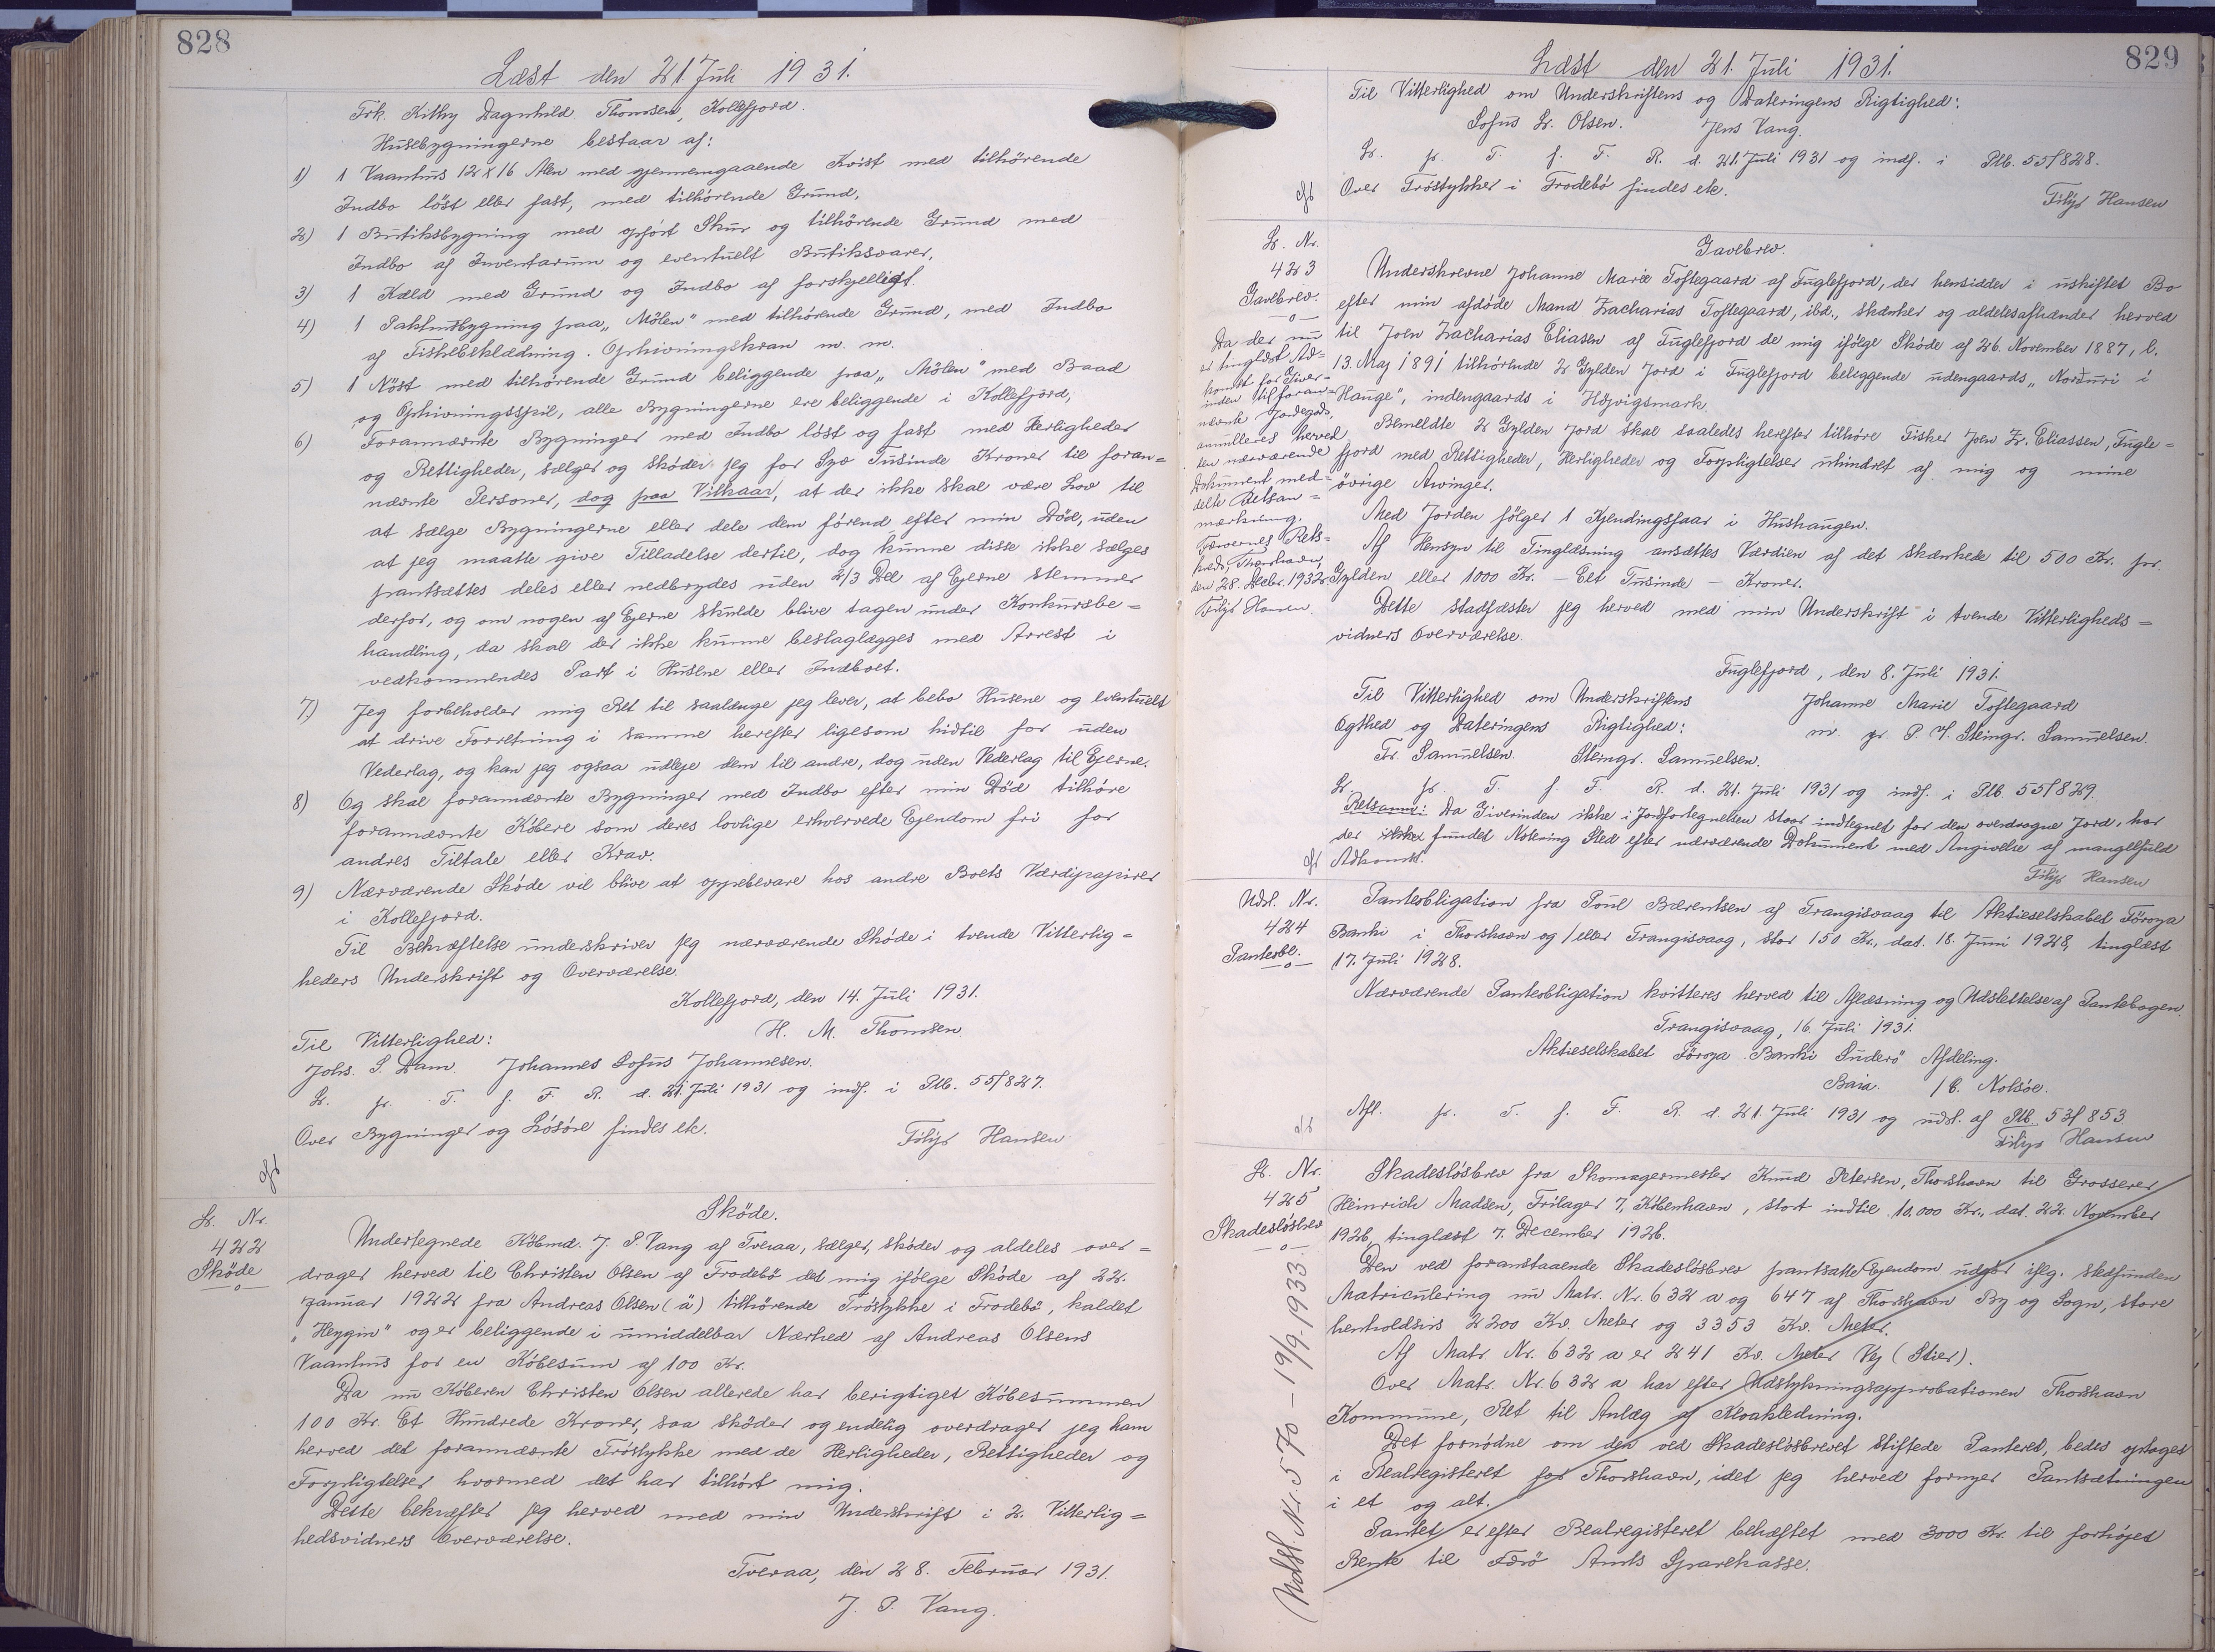 828
Læst den 21. Juli 1931.
Frk. Kithy Dagnhild Thomsen, Kollefjord.
Husebygningerne bestaar af:
1) 1 Vaanhus 12 x 16 Alen med gjennemgaaende Kvist med tilhörende
Indbo löst eller fast, med tilhörende Grund,
2) 1 Butiksbygning med opfört Skur og tilhörende Grund med
Indbo af Inventarum og eventuelt Butiksvarer,
3) 1 Kæld med Grund og Indbo af forskjelligt.
4) 1 Pakhusbygning paa "Mölen" med tilhörende Grund, med Indbo
af Fiskebeklædning. Ophivningskran m. m.
5) 1 Nöst med tilhörende Grund beliggende paa "Mölen" med Baad
og Ophivningsspil, alle Bygningerne ere beliggende i Kollefjord,
6) Forannævnte Bygninger med Indbo löst og fast med Herligheder
og Rettigheder, sælger og sköder jeg for Syv Tusinde Kroner til foran=
nævnte Personer, dog paa Vilkaar, at der ikke skal være Lov til
at sælge Bygningerne eller dele dem förend efter min Död, uden
at jeg maatte give Tilladelse dertil, dog kunne disse ikke sælges
pantsættes deles eller nedbrydes uden 2/3 Del af Ejerne stemmer
derfor, og om nogen af Ejerne skulde blive tagen under Konkursbe=
handling, da skal der ikke kunne beslaglægges med Arrest i
vedkommendes Part i Husene eller Indboet.
7) Jeg forbeholder mig Ret til saalænge jeg lever, at bebo Husene og eventuelt
at drive Forretning i samme herefter ligesom hidtil for uden
Vederlag, og kan jeg ogsaa udleje dem til andre, dog uden Vederlag til Ejerne.
8) Og skal forannævnte Bygninger med Indbo efter min Död tilhöre
forannævnte Köbere som deres lovlige erhvervede Ejendom fri for
andres Tiltale eller Krav.
9) Nærværende Sköde vil blive at oppebevare hos andre Boets Værdipapirer
i Kollefjord.
Til Bekræftelse underskriver jeg nærværende Sköde i tvende Vitterlig=
heders Underskrift og Overværelse.
Kollefjord, den 14. Juli 1931.
H. M. Thomsen.
Til Vitterlighed:
Johs. P. Dam. Johannes Sofus Johannesen.
L. p. T. f. F. R. d. 21. Juli 1931 og indf. i Ptb. 55/827.
Over Bygninger og Lösöre findes ek.
Filip Hansen
L. Nr.
422
Sköde
Sköde.
Undertegnede Köbmd. J. P. Vang af Tveraa, sælger, sköder og aldeles over=
drager herved til Christen Olsen af Frodebö det mig ifölge Sköde af 22.
Januar 1922 fra Andreas Olsen (ä) tilhörende Tröstykke i Frodebö, kaldet
"Heygin" og er beliggende i umiddelbar Nærhed af Andreas Olsens
Vaanhus for en Köbesum af 100 Kr.
Da nu Köberen Christen Olsen allerede har berigtiget Köbesummen
100 Kr. Et Hundrede Kroner, saa sköder og endelig overdrager jeg ham
herved det forannævnte Tröstykke med de Herligheder, Rettigheder og
Forpligtelser hvormed det har tilhört mig.
Dette bekræfter jeg herved med min Underskrift i 2. Vitterlig=
hedsvidners Overværelse.
Tveraa, den 28. Februar 1931.
J. P. Vang.
829
Læst den 21. Juli 1931.
Til Vitterlighed om Underskriftens og Dateringens Rigtighed:
Sofus L. Olsen. Jens Vang.
L. p. T. f. F. R. d. 21. Juli 1931 og indf. i Ptb. 55/828.
Over Tröstykker i Frodebö findes ek.
Filip Hansen
L. Nr.
423
Gavebrev.
Da der nu
er tinglæst Ad=
komst for Giver=
inden til foran=
nævnte Jordegods,
annulleres herved
den nærværende
Dokument med=
delte Retsan=
mærkning.
Færøernes Rets=
kreds, Thorshavn,
den 28. Decbr. 1932.
Filip Hansen.
Gavebrev.
Underskrevne Johanne Marie Toftegaard af Fuglefjord, der hensidder i uskiftet Bo
efter min afdöde Mand Zacharias Toftegaard, ibd., skænker og aldeles afhænder herved
til Joen Zacharias Eliasen af Fuglefjord de mig ifölge Sköde af 26. November 1887, l.
13. Maj 1891 tilhörende 2 Gylden Jord i Fuglefjord beliggende udengaards "Norduri i
Hauge", indengaards i Högvigsmark.
Bemeldte 2 Gylden Jord skal saaledes herefter tilhöre Fisker Joen Zr. Eliassen, Fugle=
fjord med Rettigheder, Herligheder og Forpligtelser uhindret af mig og mine
övrige Arvinger.
Med Jorden fölger 1 Kjendingsfaar i Hushaugen.
Af Hensyn til Tinglæsning ansættes Værdien af det skænkede til 500 Kr. pr.
Gylden eller 1000 Kr. — Eet Tusinde — Kroner.
Dette stadfæster jeg herved med min Underskrift i tvende Vitterligheds=
vidners Overværelse.
Fuglefjord, den 8. Juli 1931.
Til Vitterlighed om Underskriftens
Johanne Marie Toftegaard
Ægthed og Dateringens Rigtighed:
m. p. P. V. Steingr. Samuelsen.
Fr. Samuelsen. Steingr. Samuelsen.
L. p. T. f. F. R. d. 21. Juli 1931 og indf. i Ptb. 55/829.
Retsanm: Da Giverinden ikke i Jordfortegnelsen staar indtegnet for den overdragne Jord, har
der ikke fundet Notering Sted efter nærværende Dokument med Angivelse af mangelfuld
Adkomst.
Filip Hansen
Udsl. Nr.
424
Panteobl.
Panteobligation fra Poul Bærentsen af Trangisvaag til Aktieselskabet Föroya
Banki i Thorshavn og/eller Trangisvaag, stor 150 Kr., dat. 18. Juni 1928, tinglæst
17. Juli 1928.
Nærværende Panteobligation kvitteres herved til Aflæsning og Udslettelse af Pantebogen.
Trangisvaag, 16. Juli 1931.
Aktieselskabet Föroya Banki Suderö Afdeling.
Baia. / C. Nolsöe.
Afl. p. T. f. F. R. d. 21. Juli 1931 og udsl. af Ptb. 53/853
Filip Hansen
L. Nr.
425
Skadeslösbrev
Udsl. Nr. 570 – 19/9-1933.
Skadeslösbrev fra Skomagermester Knud Petersen, Thorshavn til Grosserer
Heinrich Madsen, Frilager 7, Köbenhavn, stort indtil 10.000 Kr., dat. 22. November
1926, tinglæst 7. December 1926.
Den ved foranstaaende Skadeslösbrev pantsatte Ejendom udgör iflg. stedfunden
Matriculering nu Matr. Nr. 632 a og 647 af Thorshavn By og Sogn, store
henholdsvis 2200 Kv. Meter og 3353 Kv. Meter.
Af Matr. Nr. 632 a er 241 Kv. Meter Vej (Stier).
Over Matr. Nr. 632 a har efter Udstykningsapprobationen Thorshavn
Kommune, Ret til Anlæg af Kloakledning.
Det fornödne om den ved Skadeslösbrevet stiftede Panteret, bedes optaget
i Realregisteret for Thorshavn, idet jeg herved fornyer Pantsætningen
i et og alt.
Pantet er efter Realregisteret behæftet med 3000 Kr. til forhöjet
Rente til Færö Amts Sparekasse.